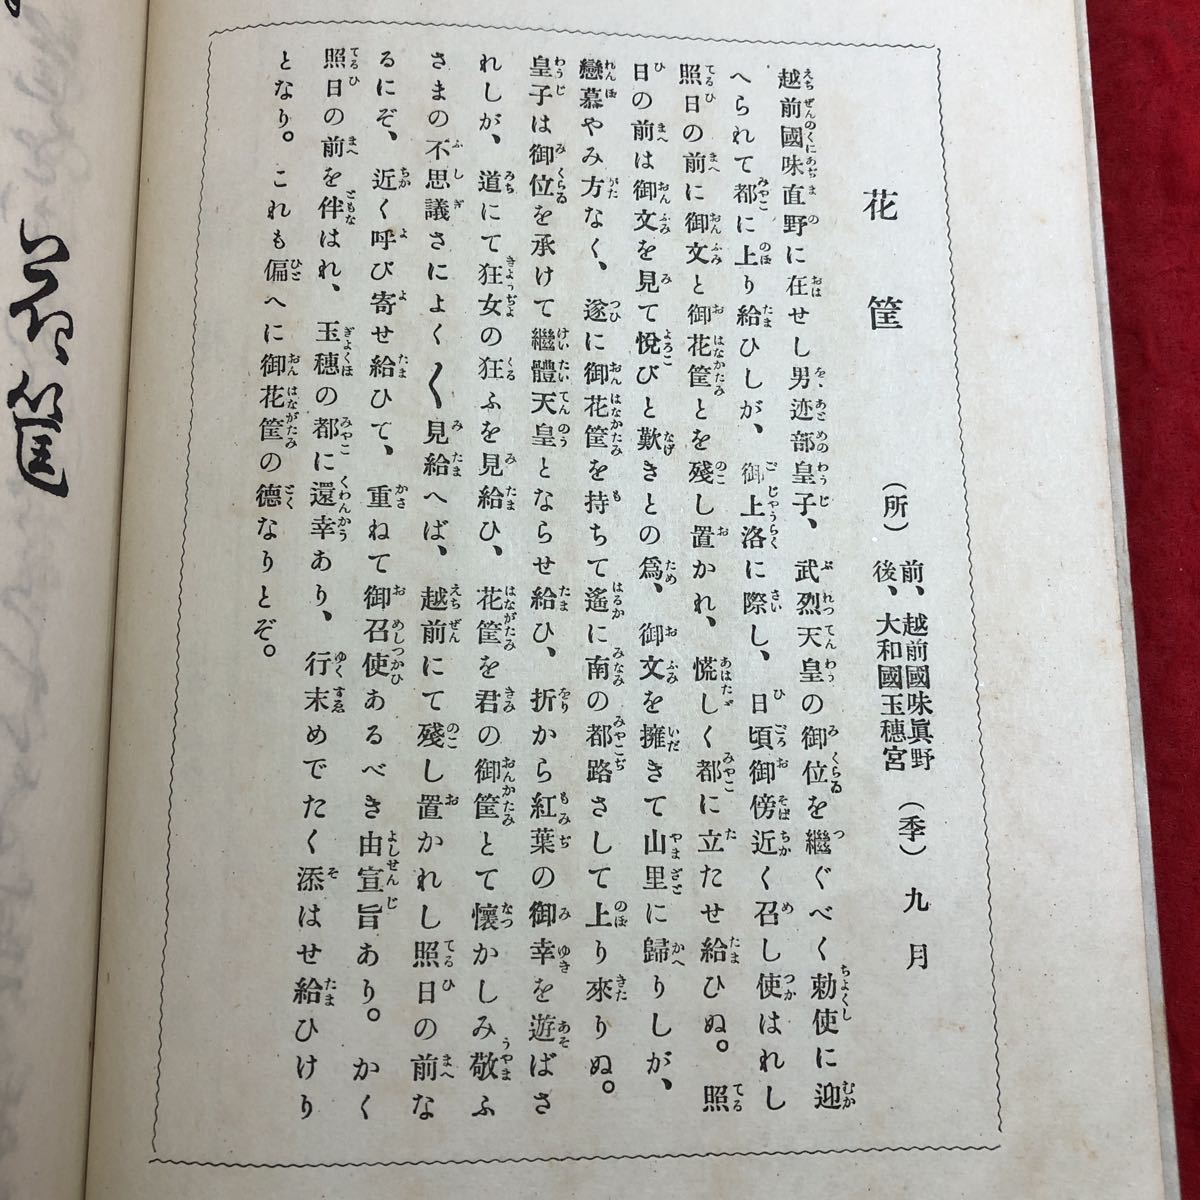 花筐
(所) 前、越前國味眞野
後、大和國玉穗宮
(季) 九月
越前國味直野に在せし男迹部皇子、武烈天皇の御位を繼ぐべく勅使に迎
へられて都に上り給ひしが、御上洛に際し、日頃御傍近く召し使はれし
照日の前に御文と御花筐とを殘し置かれ、慌しく都に立たせ給ひぬ。照
日の前は御文を見て悅びと歎きとの爲、御文を擁きて山里に歸りしが、
戀慕やみ方なく、遂に御花筐を持ちて遙に南の都路さして上り來りぬ。
皇子は御位を承けて繼體天皇とならせ給ひ、折から紅葉の御幸を遊ばさ
れしが、道にて狂女の狂ふを見給ひ、花筐を君の御筐とて懷かしみ敬ふ
さまの不思議さによく〱見給へば、越前にて殘し置かれし照日の前な
るにぞ、近く呼び寄せ給ひて、重ねて御召使あるべき由宣旨あり。かく
照日の前を伴はれ、玉穗の都に還幸あり、行末めでたく添はせ給ひけり
となり。これも偏へに御花筐の德なりとぞ。